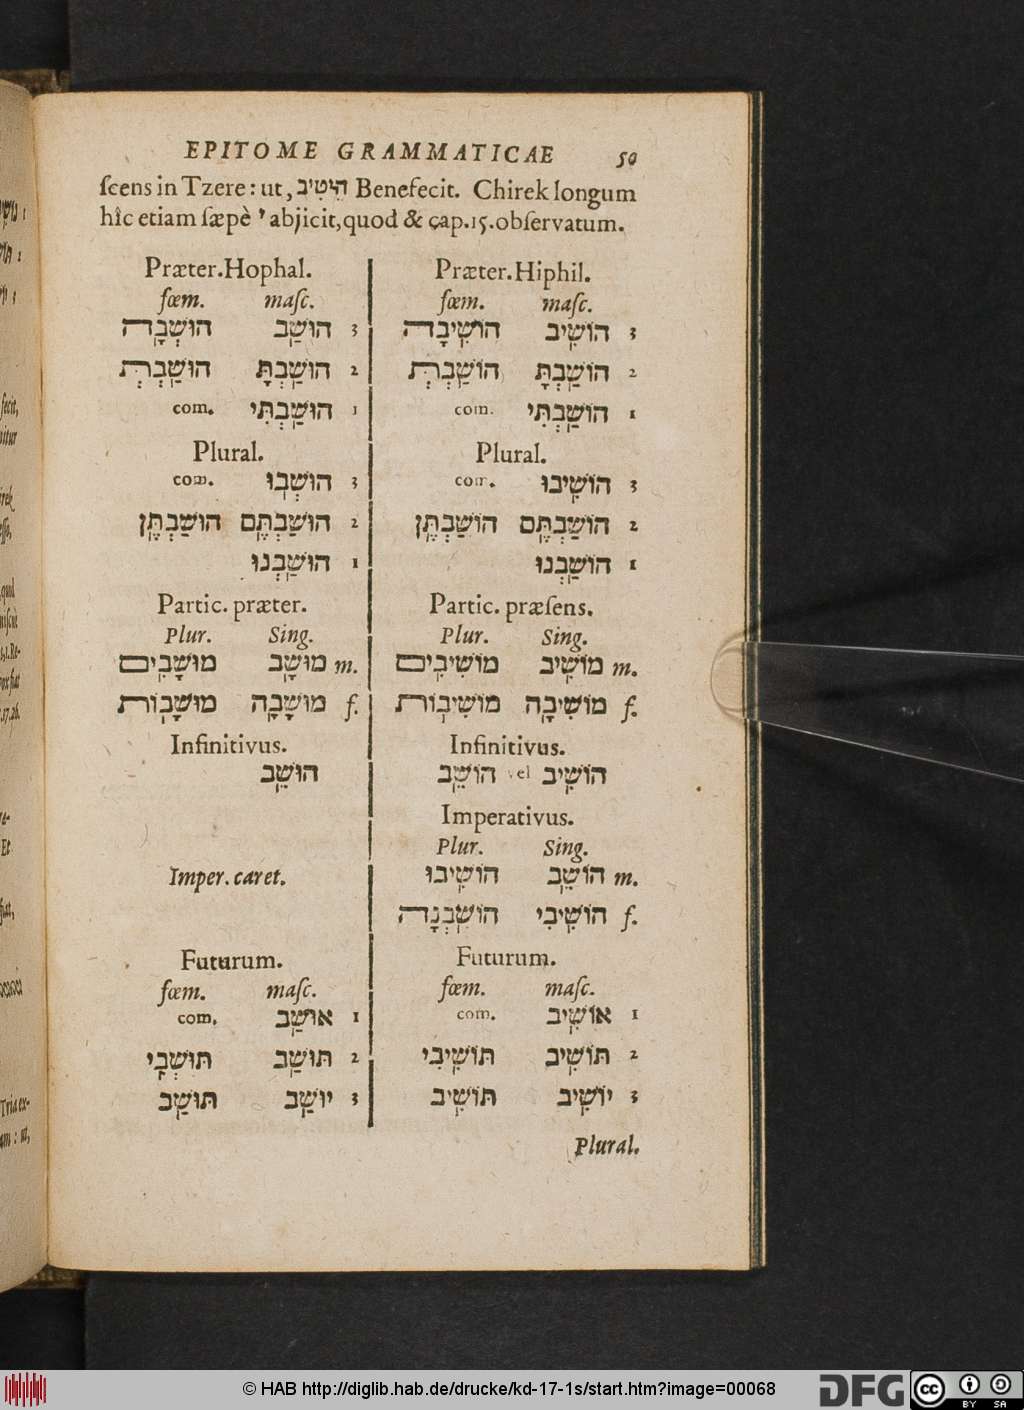 EPITOME GRAMMATICAE 50
ſcens in Tzere: ut, הֵיטִיב Benefecit. Chirek longum
hîc etiam ſæpè י abjicit, quod & cap. 15. obſervatum.
Præter. Hophal. Præter. Hiphil.
fœm. maſc. fœm. maſc.
3 הוֹשִׁיב הוֹשִׁיבָה 3 הוּשַׁב הוּשְׁבָה
2 הוֹשַׁבְתָּ הוֹשַׁבְתְּ 2 הוּשַׁבְתָּ הוּשַׁבְתְּ
1 הוֹשַׁבְתִּי com. 1 הוּשַׁבְתִּי com.
Plural. Plural.
3 הוֹשִׁיבוּ com. 3 הוּשְׁבוּ com.
2 הוֹשַׁבְתֶּם הוֹשַׁבְתֶּן 2 הוּשַׁבְתֶּם הוּשַׁבְתֶּן
1 הוֹשַׁבְנוּ 1 הוּשַׁבְנוּ
Partic. præter. Partic. præſens.
Plur. Sing. Plur. Sing.
m. מוֹשִׁיב מוֹשִׁיבִים m. מוּשָׁב מוּשָׁבִים
f. מוֹשִׁיבָה מוֹשִׁיבוֹת f. מוּשָׁבָה מוּשָׁבוֹת
Infinitivus. Infinitivus.
הוֹשִׁיב vel הוֹשֵׁב הוּשֵׁב
Imperativus.
Plur. Sing.
Imper. caret. m. הוֹשֵׁב הוֹשִׁיבוּ
f. הוֹשִׁיבִי הוֹשֵׁבְנָה
Futurum. Futurum.
fœm. maſc. fœm. maſc.
1 אוֹשִׁיב com. 1 אוּשַׁב com.
2 תּוֹשִׁיב תּוֹשִׁיבִי 2 תּוּשַׁב תּוּשְׁבִי
3 יוֹשִׁיב תּוֹשִׁיב 3 יוּשַׁב תּוּשַׁב
Plural.
© HAB http://diglib.hab.de/drucke/kd-17-1s/start.htm?image=00068
DFG
CC BY SA